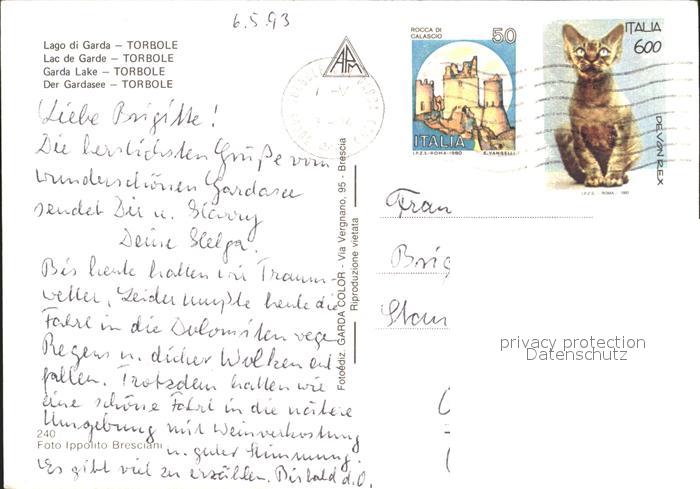 6.5.93
Lago di Garda – TORBOLE
Lac de Garde – TORBOLE
Garda Lake – TORBOLE
Der Gardasee – TORBOLE
Liebe Brigitte!
Die herzlichsten Grüße vom
wunderschönen Gardasee
sendet Dir u.
Deine Helga.
Bis heute hatten wir Traum-
wetter. Leider mußte heute die
Fahrt in die Dolomiten wegen
Regens u. dicker Wolken ent-
fallen. Trotzdem hatten wir
eine schöne Fahrt in die nähere
Umgebung mit Weinverkostung
u. guter Stimmung.
Es gibt viel zu erzählen. Bis bald d.O.
240
Foto Ippolito Bresciani
Fotoediz. GARDA COLOR - Via Vergnano, 95 - Brescia
Riproduzione vietata
ROCCA DI
CALASCIO
50
ITALIA
I.P.Z.S. - ROMA - 1980
E. VANGELLI
ITALIA
600
DEVON REX
I.P.Z.S. ROMA
Frau
Brig
privacy protection
Datenschutz